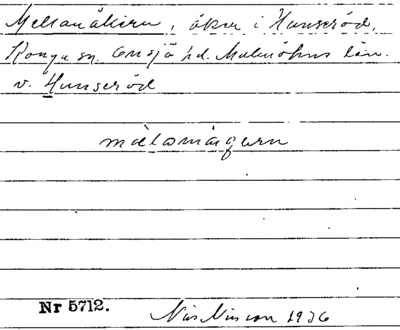 Mellanåkern, åker i Hunseröd,
Konga sn. Onsjö hd. Malmöhus län.
v. Hunseröd
Nr 5712. Nils Nilsson 1936